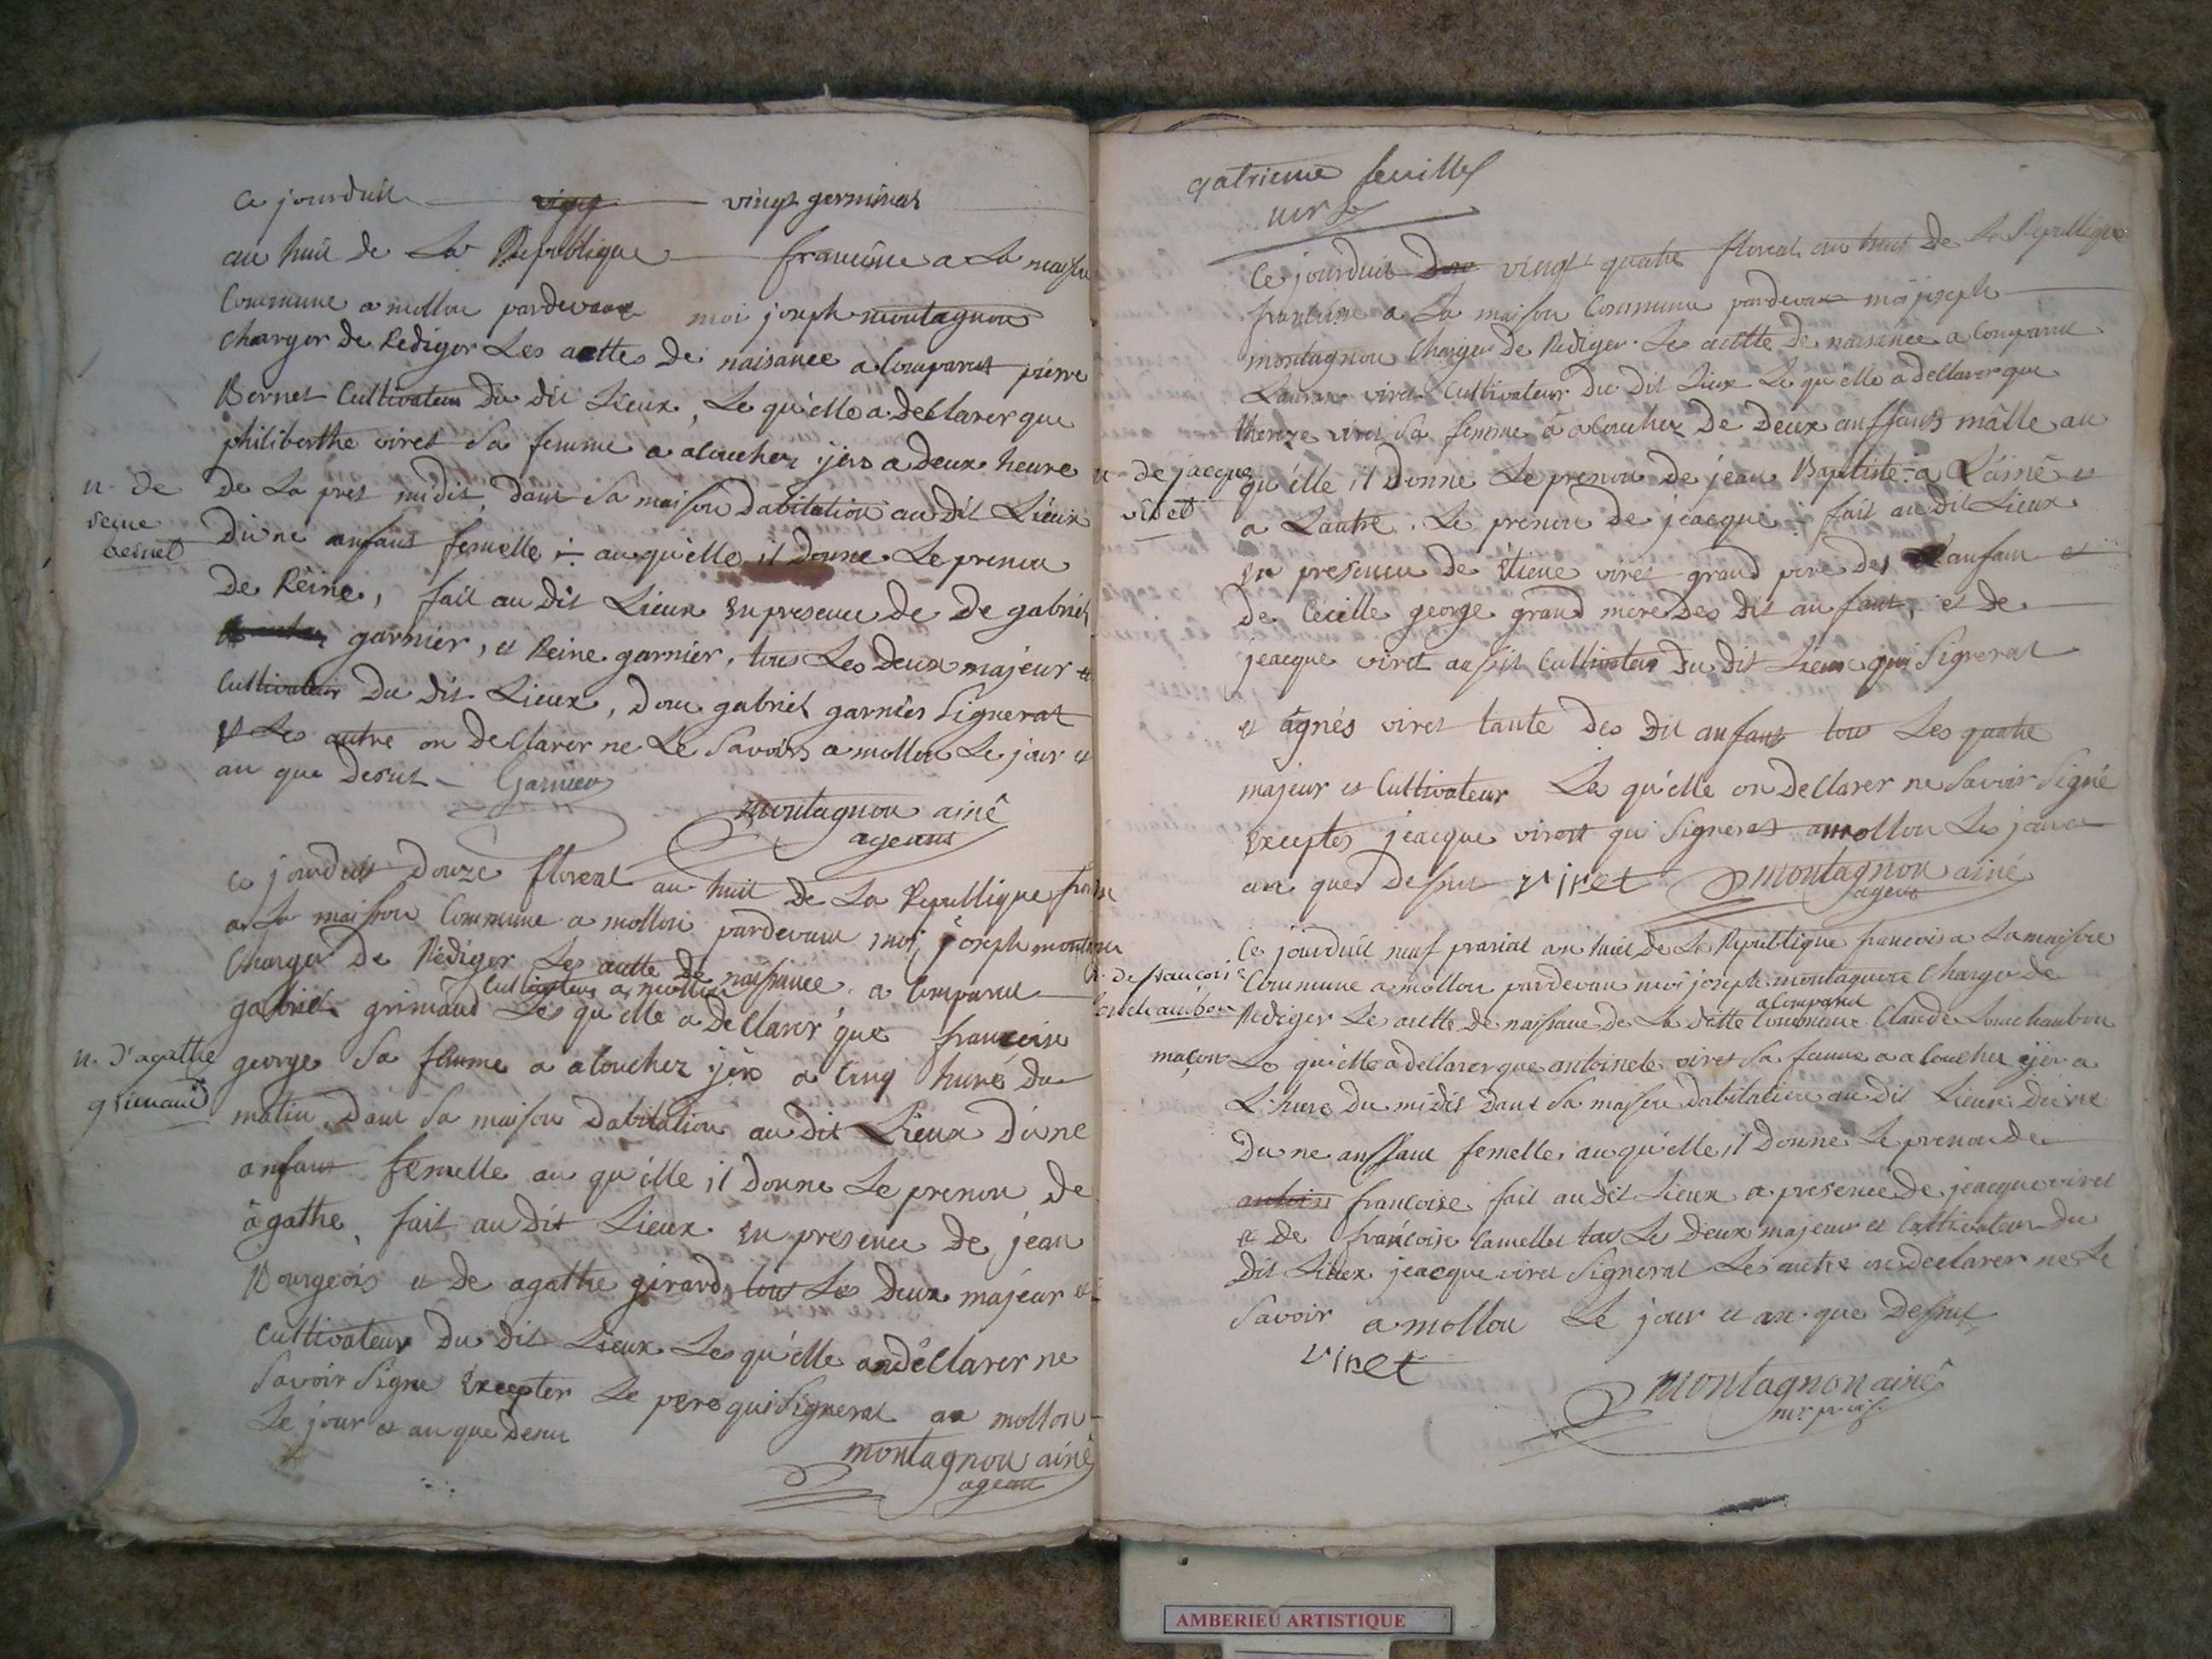 ce jourduit vingt germinal
au huit de La Republique francoise a La maison
Commune a mollon pardevant moi joseph montagnon
charger de Rediger Les actte de naisance a Comparut pierre
Bernet Cultivateur Du dit Lieux, Le qu'elle a declarer que
philiberthe viret Sa femme a acoucher jer a deux heure
n. de
reine
bernet
de La pres midit, dant Sa maison Dabitation au dit Lieux
Du'ne anfant femelle auqu'elle il Donne Le prenon
De Reine, fait au dit Lieux En presence de De gabriel
garnier, et Reine garnier, tous Les Deux majeur et
Cultivateur Du dit Lieux, Donc gabriel garnier Signerat
Les autre on declarer ne Le Savoirs a mollon Le jour et
an que desut Garnier
montagnon ainê
ageant
Ce jourduit Douze floreal an huit de La Republique
a La maison Commune a mollon pardevant moi joseph
Charger De Rédiger Les actte de naissance a Comparut
Cultivateur a mollon
gabriel grimaud Le qu'elle a declarer que francoise
n. d'agathe
grimaud
george Sa femme a acoucher jer a Cinq hure du
matin, Dant Sa maison Dabitation au dit Lieux Du'ne
anfant femelle au qu'elle il Donne Le prenon De
âgathe, fait au dit Lieux En presence De jean
Bourgeois et de agathe girard, tous Les Deux majeur et
Cultivateur Du dit Lieux Les qu'elle on déclarer ne
Savoir Signe Excepter Le pere qui Signerat a mollon
Le jour et an que desu
montagnon ainé
ageant
qatrieme feuillet
Ce jourduit vingt quatre floreal an huit de La Republique
francoise a La maison Commune pardevant moi joseph
montagnon Charger De Rediger Les actte De naisance a Comparut
Lauran viret Cultivateur Du dit Lieux Le qu'elle a declarer que
therеze viret Sa femme à acoucher De Deux anffants mâlle au
n. de jacque
viret
qu'elle il Donne Le prenon de jean Baptiste a L'ainé et
a Lautre Le prenon De jeacque fait au dit Lieux
En presence de Etiene viret grand pere des anfan et
de Cécille george grand mere Des dit anfant, et de
jeacque viret aussit Cultivateur Du dit Lieux qui Signerat
et âgnés viret tante Des dit anfant tous Les quatre
majeur et Cultivateur Le qu'elle on declarer ne Savoir Signé
Excepter jeacque viret qui Signerat a mollon Le jour et
an que dessut viret montagnon ainé
ageant
Ce jourduit neuf prarial an huit de La Republique francois a La maison
n. de francoise
Commune a mollon pardevan moi joseph montagnon Charger de
a Comparut
Rediger Le actte de naissance de La ditte Commune Claude
maçon
Le qu'elle a declarer que antoinete viret Sa femme a acoucher jer a
L'hure Du midit Dant Sa maison Dabitation au dit Lieux
Du ne anffant femelle, au qu'elle il Donne Le prenon de
francoise fait au dit Lieux a presence De jeacque viret
et De francoise tous Les Deux majeur et Cultivateur Du
Dit Lieux jeacque viret Signerat Les autre on declarer ne Le
Savoir a mollon Le jour et an que dessut
viret
montagnon ainê
AMBERIEU ARTISTIQUE